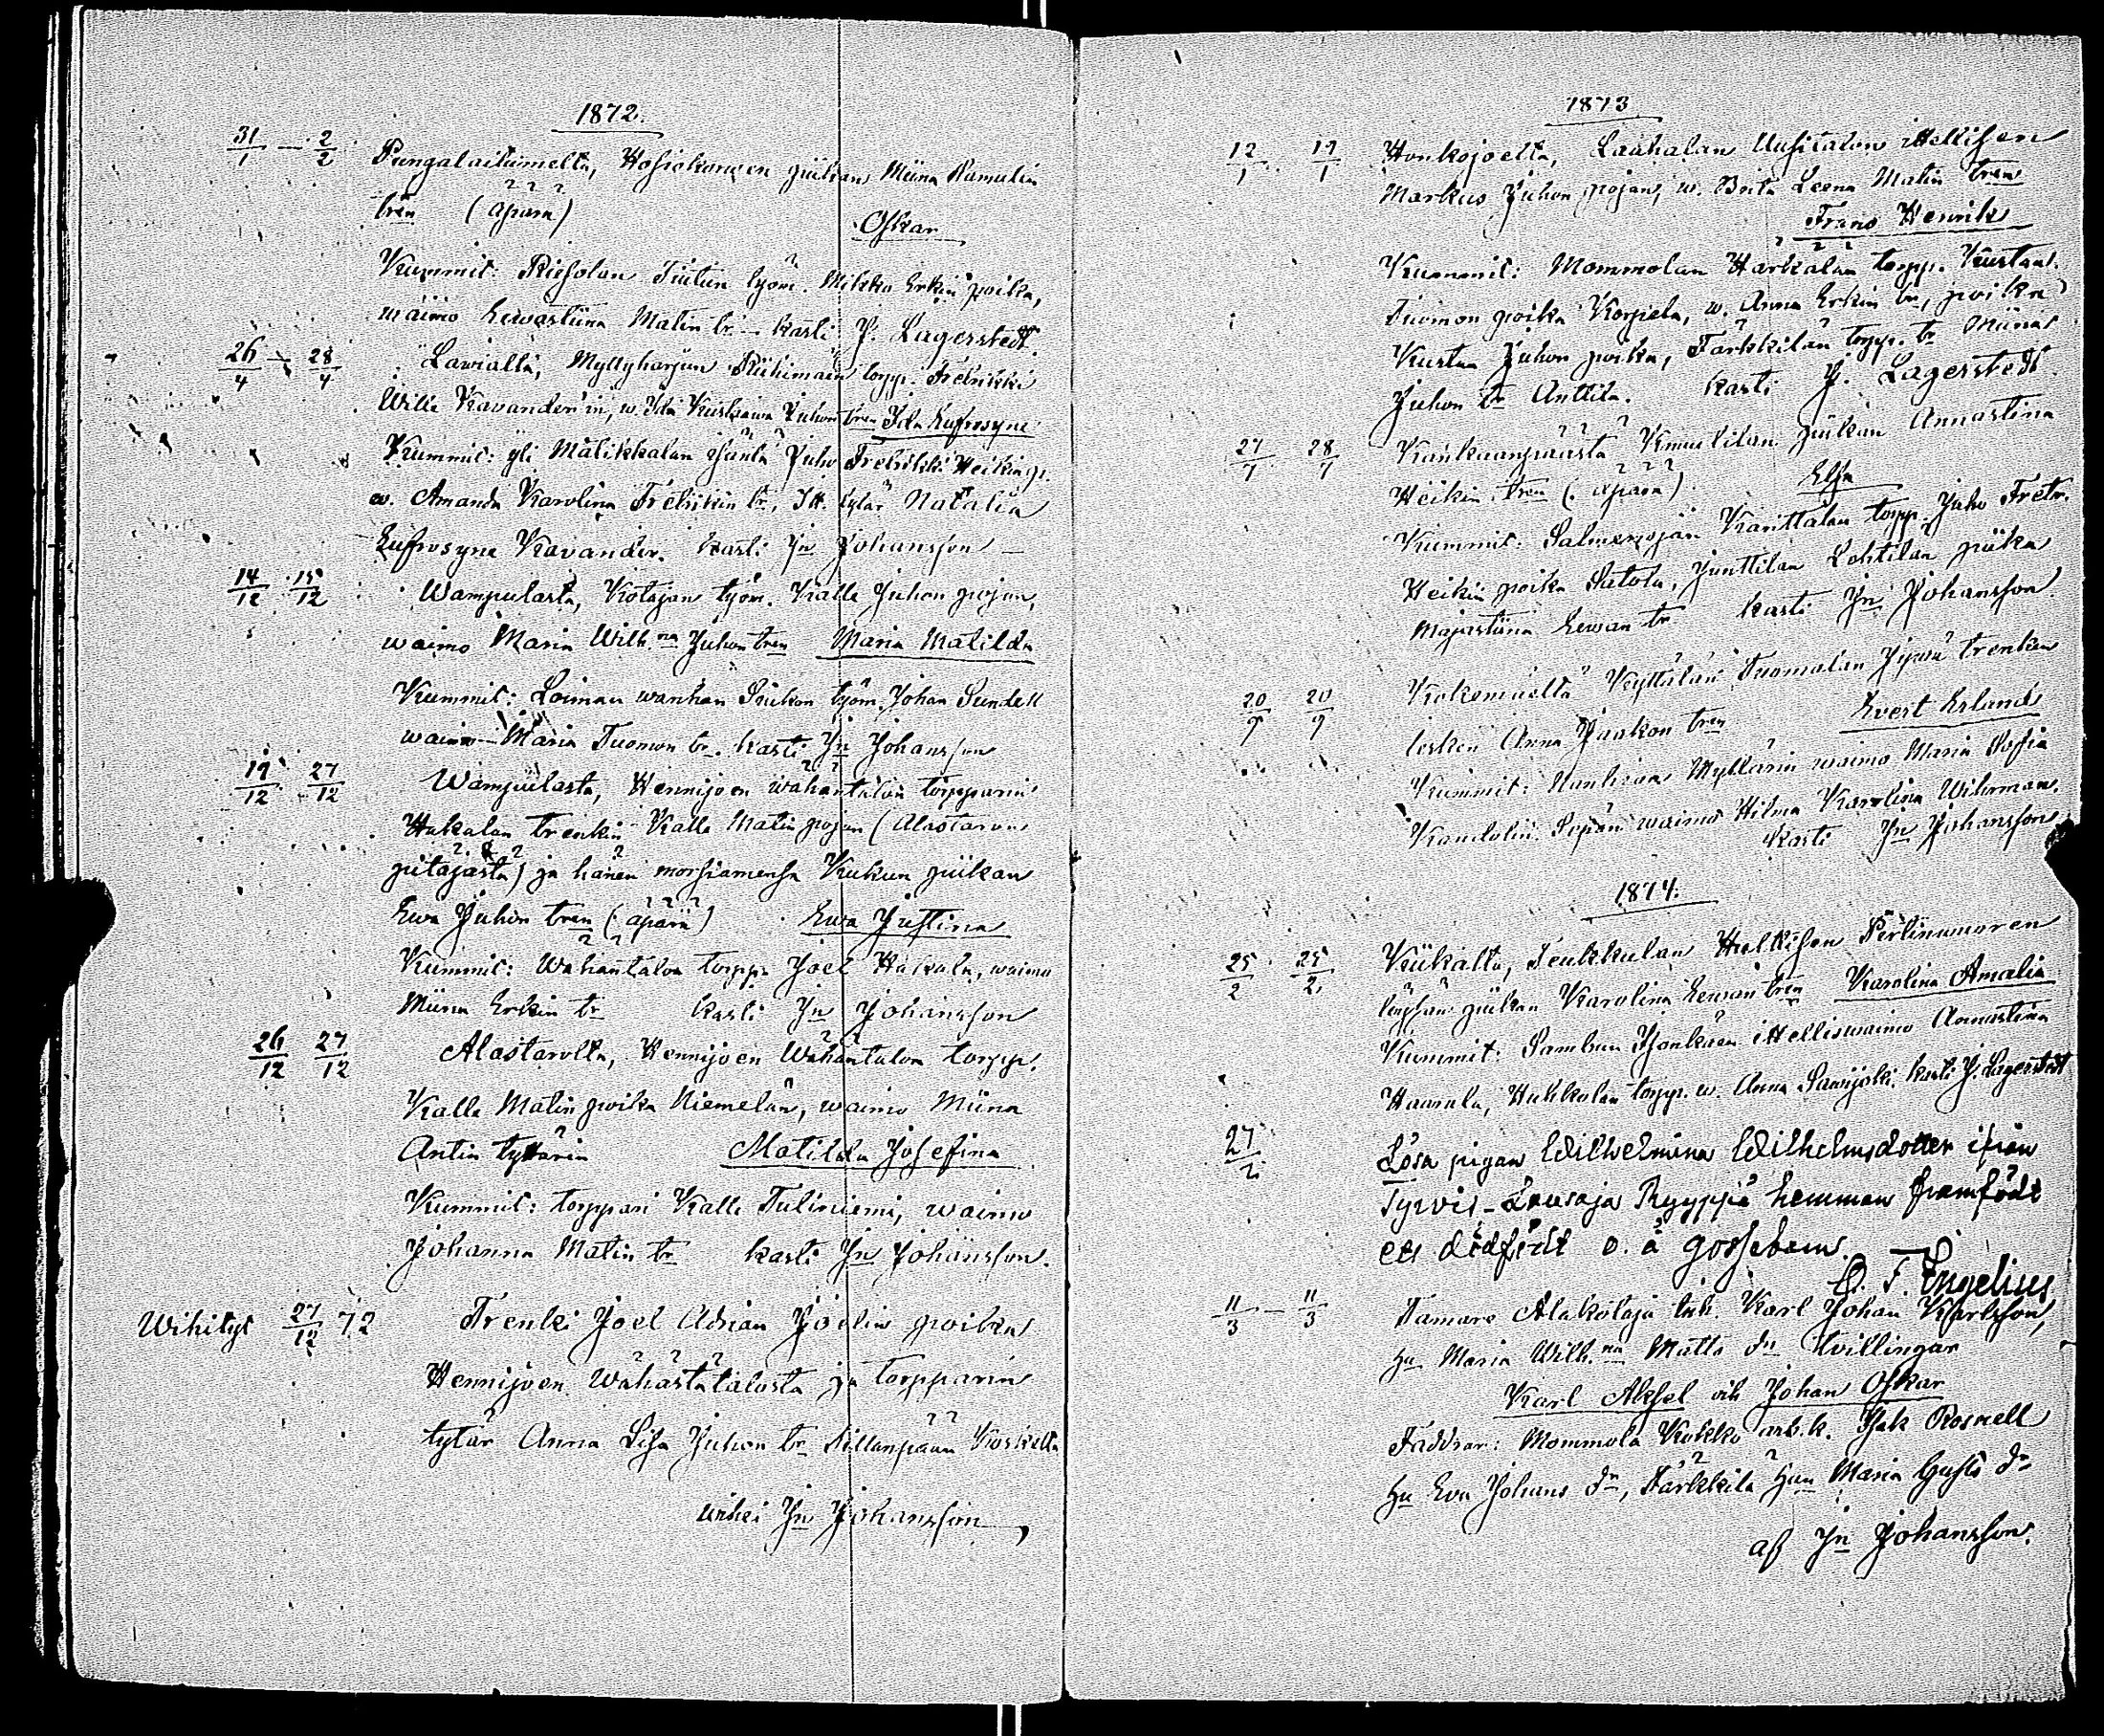 1872.
31/1 — 2/2 Pungalaitumelta, piikan Miina Ramulin
tren (äpärä) Oskar
Kummit: Riesolan työm. Mikko Erkin poika,
waimo Eewastiina Matin tr — kasti J. Lagerstedt.
26/4 — 28/4 Lawialta, Myllyharjun Riihimäen torpp. Fredrikki
Wille Kavander'in, w. Ida Kustaawa Juhon tren Ida Eufrosyne
Kummit: yli Mälikkälän isäntä Juho Fredrikki Heikin p.
w. Amanda Karolina Fredrikin tr, Itk. tytär Natalia
Eufrosyne Kavander. kasti Jn Johansson —
14/12 15/12 Wampulasta, Kotajan työm. Kalle Juhon pojan,
waimo Maria Wilh.na Juhon tren Maria Matilda
Kummit: Loimaa wanhan työm. Johan Sundell
waimo Maria Tuomon tr. kasti Jn Johansson
19/12 27/12 Wampulasta, Hennijoen wähäntalon torpparin
Hakalan trenkin Kalle Matin pojan (Alastaron
pitäjästä) ja hänen morsiamensa Kukun piikan
Ewa Juhon tren (äpärä) Ewa Justina
Kummit: Wähäntalon torpp. Joel Hakala, waimo
Miina Erkin tr kasti Jn Johansson
26/12 27/12 Alastarolta, Hennijoen Wähäntalon torpp.
Kalle Matin poika Niemelän, waimo Miina
Antin tyttärin Matilda Josefina
Kummit: torppari Kalle Tuliniemi, waimo
Johanna Matin tr kasti Jn Johansson.
Wihityt 27/12 72 Trenki Joel Adrian Joelin poika
Hennijoen Wähästätalosta ja torpparin
tytär Anna Lisa Juhon tr Sillanpään Koskelta
wihei Jn Johansson,
1873
12/1 19/1 Honkojoelta, Lauhalan Uusitalon itellisen
Markus Juhon pojan, w. Brita Leena Matin tren
Frans Henrik
Kummit: Mommolan Härkälän torpp. Kustaa
Tuomon poika Korpela, w. Anna Erkin tr, poika
Kustaa Juhon poika, Tärkkilän torpp. tr Miina
Juhon tr Anttila. kasti J. Lagerstedt.
27/7 28/7 Kankaanpäästä Knuutilan piikan Annastina
Heikin tren (äpärä) Elsa
Kummit: Salmenojan Karittalan torpp. Juho Fredr.
Heikin poika Satola, Junttilan Lohtilan piika
Majastiina Eewan tr kasti Jn Johansson.
20/9 20/9 Kokemäeltä Kyttälän Tuomalan trenkin
lesken Anna Jaakon tren Evert Erland
Kummit: Nanhian Myllärin waimo Maria Sofia
Kandolin. Sepän waimo Hilma Karolina Wihrman.
Kasti Jn Johansson
1874.
25/2 25/2 Kiikalta, Teukkulan
piikan Karolina Eewan tren Karolina Amalia
Kummit: Sambun itelliswaimo Annastina
Haawala, Huhkolan torpp. w. Anna Sawijoki. kasti J. Lagerstedt
27/2 Lösa pigan Wilhelmina Wilhelmsdotter ifrån
Tyrvis - Lousaja Ryyppiä hemman framfödt
ett dödfödt o. ä gossebarn.
O. F. Engelius
11/3 — 11/3 Tamare Alakotaja inh. Karl Johan Karlsson,
hu Maria Wilh.na Matts dr tvillingar
Karl Aksel och Johan Oskar
Faddrar: Mommola Kokko arb.k. Isak Rosnell
hu Eva Johans dr, Tärkkilä hu Maria Gusts dr
af Jn Johansson.